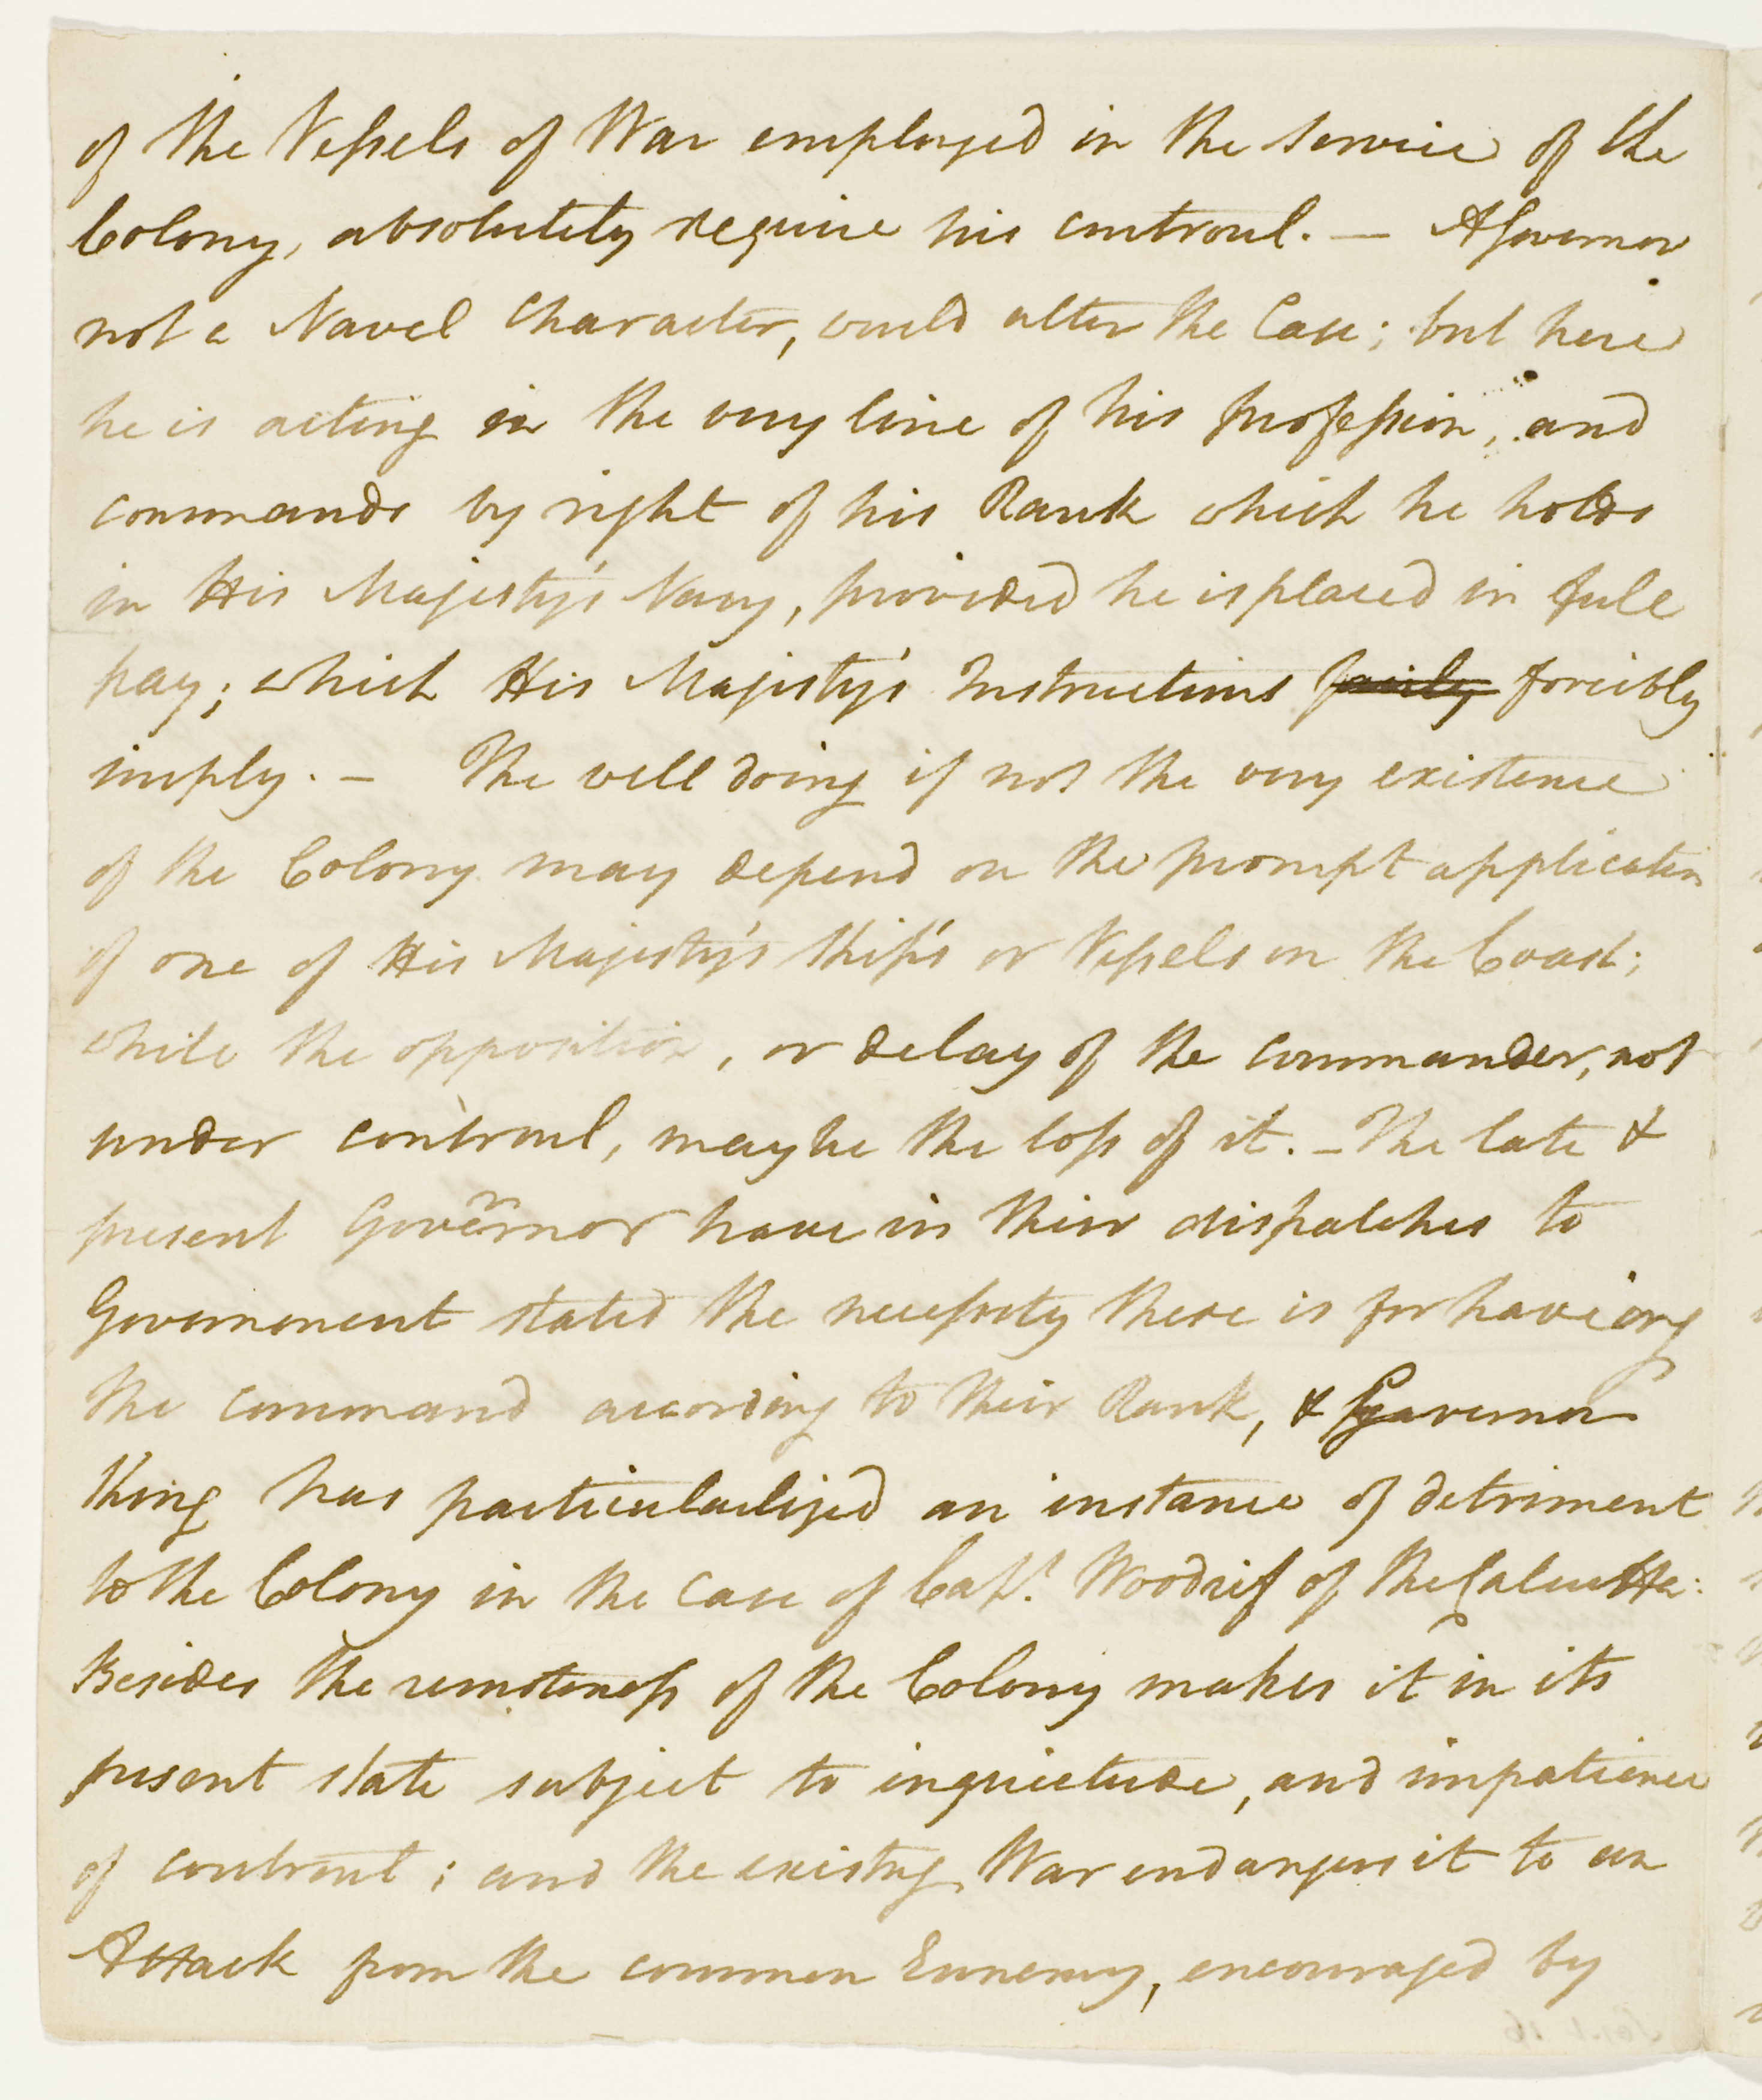 of the Vessels of War employed in the service of the
Colony, absolutely require his controul. — A Governor
not a Naval Character, would alter the Case; but here
he is acting in the very line of his profession, and
commands by right of his Rank which he holds
in His Majesty's Navy, provided he is placed in full
pay; which His Majesty's Instructions forcibly
imply. — The well doing if not the very existence
of the Colony may depend on the prompt application
of one of His Majesty's Ships or Vessels on the Coast;
while the opposition, or delay of the commander, not
under controul, may be the loss of it. — The late &
present Governor have in their dispatches to
Government stated the necessity there is for having
the command according to their Rank, & Governor
King has particularlized an instance of detriment
to the Colony in the case of Capt. Woodrif of the Calcutta:
Besides the remoteness of the Colony makes it in its
present state subject to inquietude, and impatience
of controul; and the existing War endangers it to an
Attack from the common Ennemy, encouraged by